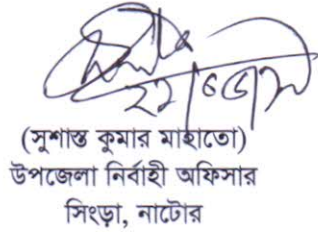 (সুশান্ত কুমার মাহাতো)
উপজেলা নির্বাহী অফিসার
সিংড়া, নাটোর